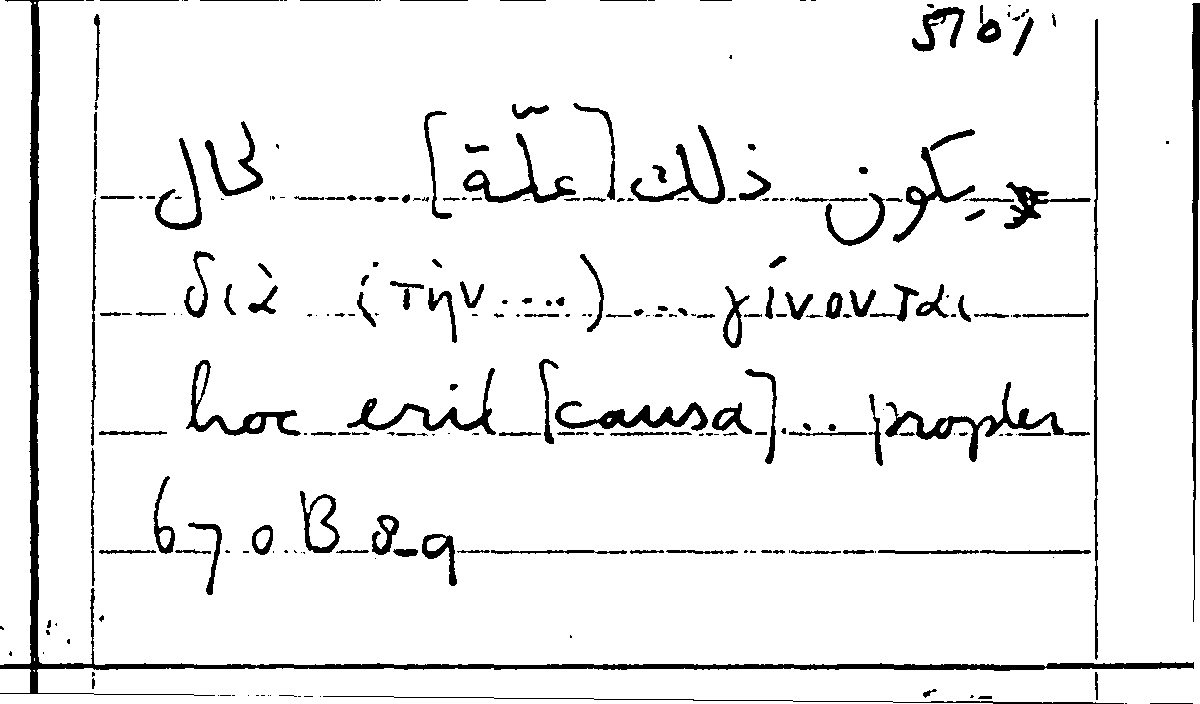 * يكون ذلك [علّة] ..... لحال
διὰ (τὴν ....) .... γίνονται
hoc erit [causa]... propter
670 B 8-9